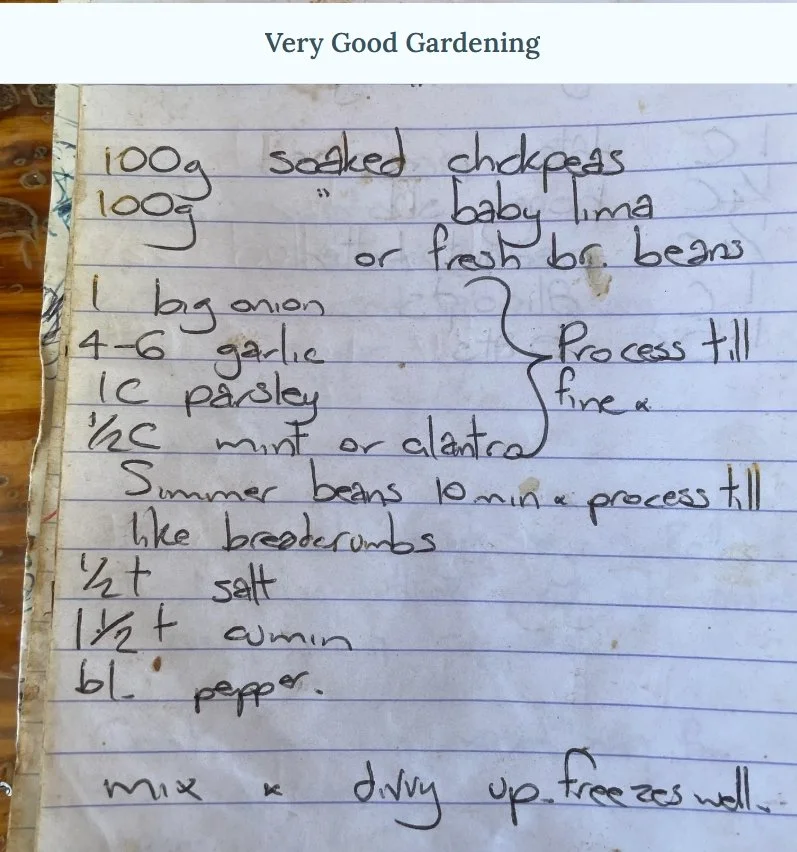 Very Good Gardening
100g soaked chickpeas
100g " baby lima
or fresh br. beans
1 big onion
4-6 garlic
1C parsley
½C mint or cilantro
Process till
fine &
Simmer beans 10 min & process till
like breadcrumbs
½ t salt
1½ t cumin
bl. pepper.
mix & divvy up. freezes well.